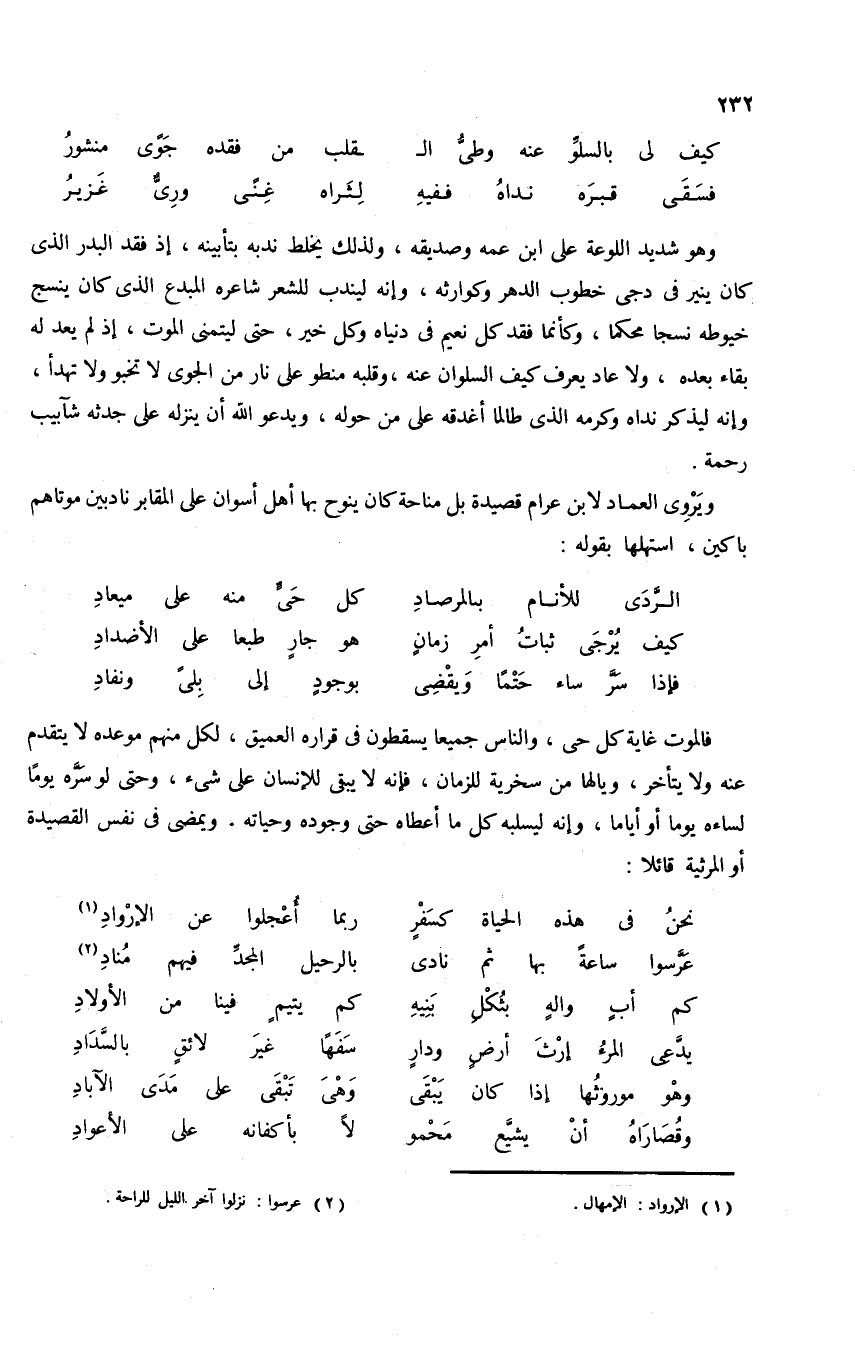 ٢٣٢
كيف لى بالسلوِّ عنه وطىُّ الـ ـقلب من فقده جَوًى منشورُ
فسَقَى قبرَه نداهُ ففيهِ لِثَراه غِنًى ورِىٌّ غَزيرُ
وهو شديد اللوعة على ابن عمه وصديقه ، ولذلك يخلط ندبه بتأبينه ، إذ فقد البدر الذى
كان ينير فى دجى خطوب الدهر وكوارثه ، وإنه ليندب للشعر شاعره المبدع الذى كان ينسج
خيوطه نسجا محكما ، وكأنما فقد كل نعيم فى دنياه وكل خير ، حتى ليتمنى الموت ، إذ لم يعد له
بقاء بعده ، ولا عاد يعرف كيف السلوان عنه ، وقلبه منطو على نار من الجوى لا تخبو ولا تهدأ ،
وإنه ليذكر نداه وكرمه الذى طالما أغدقه على من حوله ، ويدعو الله أن ينزله على جدثه شآبيب
رحمة .
ويَرْوِى العماد لابن عرام قصيدة بل مناحة كان ينوح بها أهل أسوان على المقابر نادبين موتاهم
باكين ، استهلها بقوله :
الرَّدَى للأنام بالمرصادِ كل حَىٍّ منه على ميعادِ
كيف يُرْجَى ثباتُ أمرِ زمانٍ هو جارٍ طبعا على الأضدادِ
فإذا سَرَّ ساء حَتْمًا وَيقْضِى بوجودٍ إلى بِلىً ونفادِ
فالموت غاية كل حى ، والناس جميعا يسقطون فى قراره العميق ، لكل منهم موعده لا يتقدم
عنه ولا يتأخر ، ويالها من سخرية للزمان ، فإنه لا يبقى للإنسان على شىء ، وحتى لو سَرَّه يومًا
لساءه يوما أو أياما ، وإنه ليسلبه كل ما أعطاه حتى وجوده وحياته . ويمضى فى نفس القصيدة
أو المرثية قائلا :
نحنُ فى هذه الحياة كسَفْرٍ ربما أُعْجلوا عن الإرْوادِ(١)
عَرَّسوا ساعةً بها ثم نادى بالرحيل المجدِّ فيهم مُنادِ(٢)
كم أبٍ والهٍ بثُكْلِ بَنِيهِ كم يتيمٍ فينا من الأولادِ
يدَّعى المرءُ إرْثَ أرضٍ ودارٍ سَفَهًا غيرَ لائقٍ بالسَّدَادِ
وهْو موروثُها إذا كان يَبْقَى وَهْىَ تَبْقَى على مَدَى الآبادِ
وقُصَارَاهُ أنْ يشيَّع مَحْمو لاً بأكفانه على الأعوادِ
(١) الإرواد : الإمهال .
(٢) عرسوا : نزلوا آخر الليل للراحة .